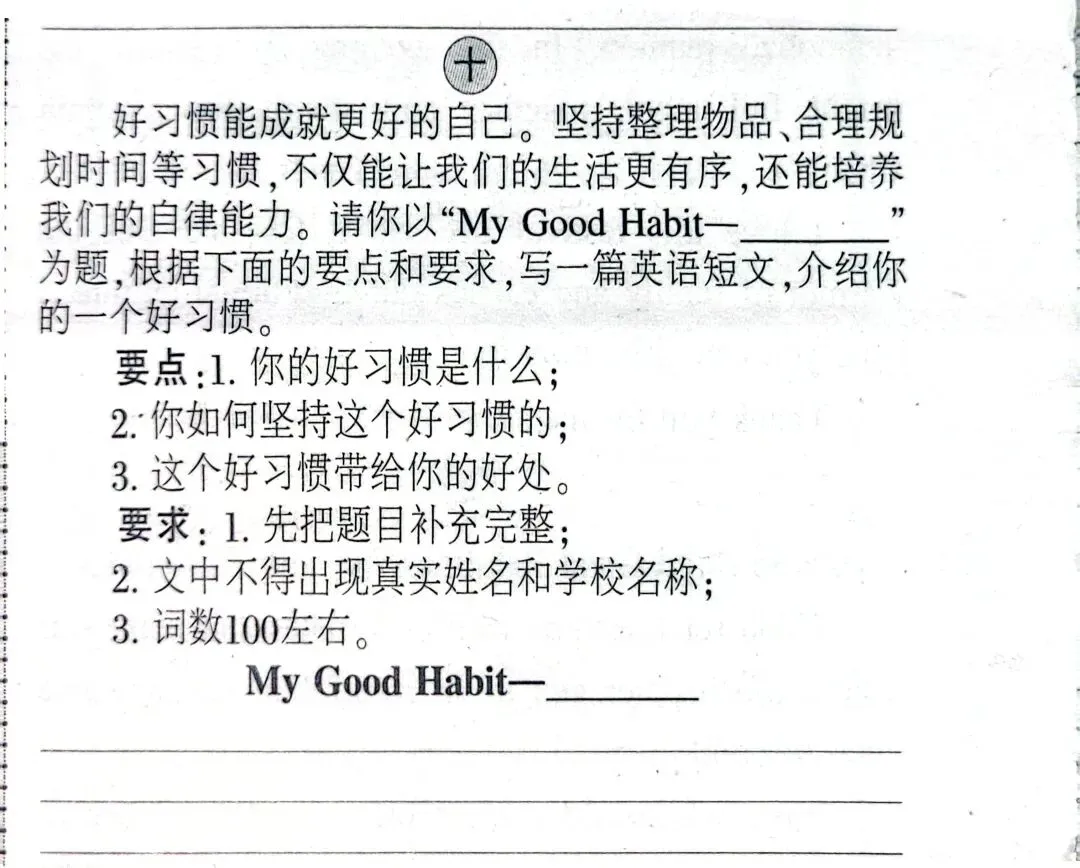 十
好习惯能成就更好的自己。坚持整理物品、合理规
划时间等习惯,不仅能让我们的生活更有序,还能培养
我们的自律能力。请你以“My Good Habit—________”
为题,根据下面的要点和要求,写一篇英语短文,介绍你
的一个好习惯。
要点:1. 你的好习惯是什么;
2. 你如何坚持这个好习惯的;
3. 这个好习惯带给你的好处。
要求: 1. 先把题目补充完整;
2. 文中不得出现真实姓名和学校名称;
3. 词数100左右。
My Good Habit—________